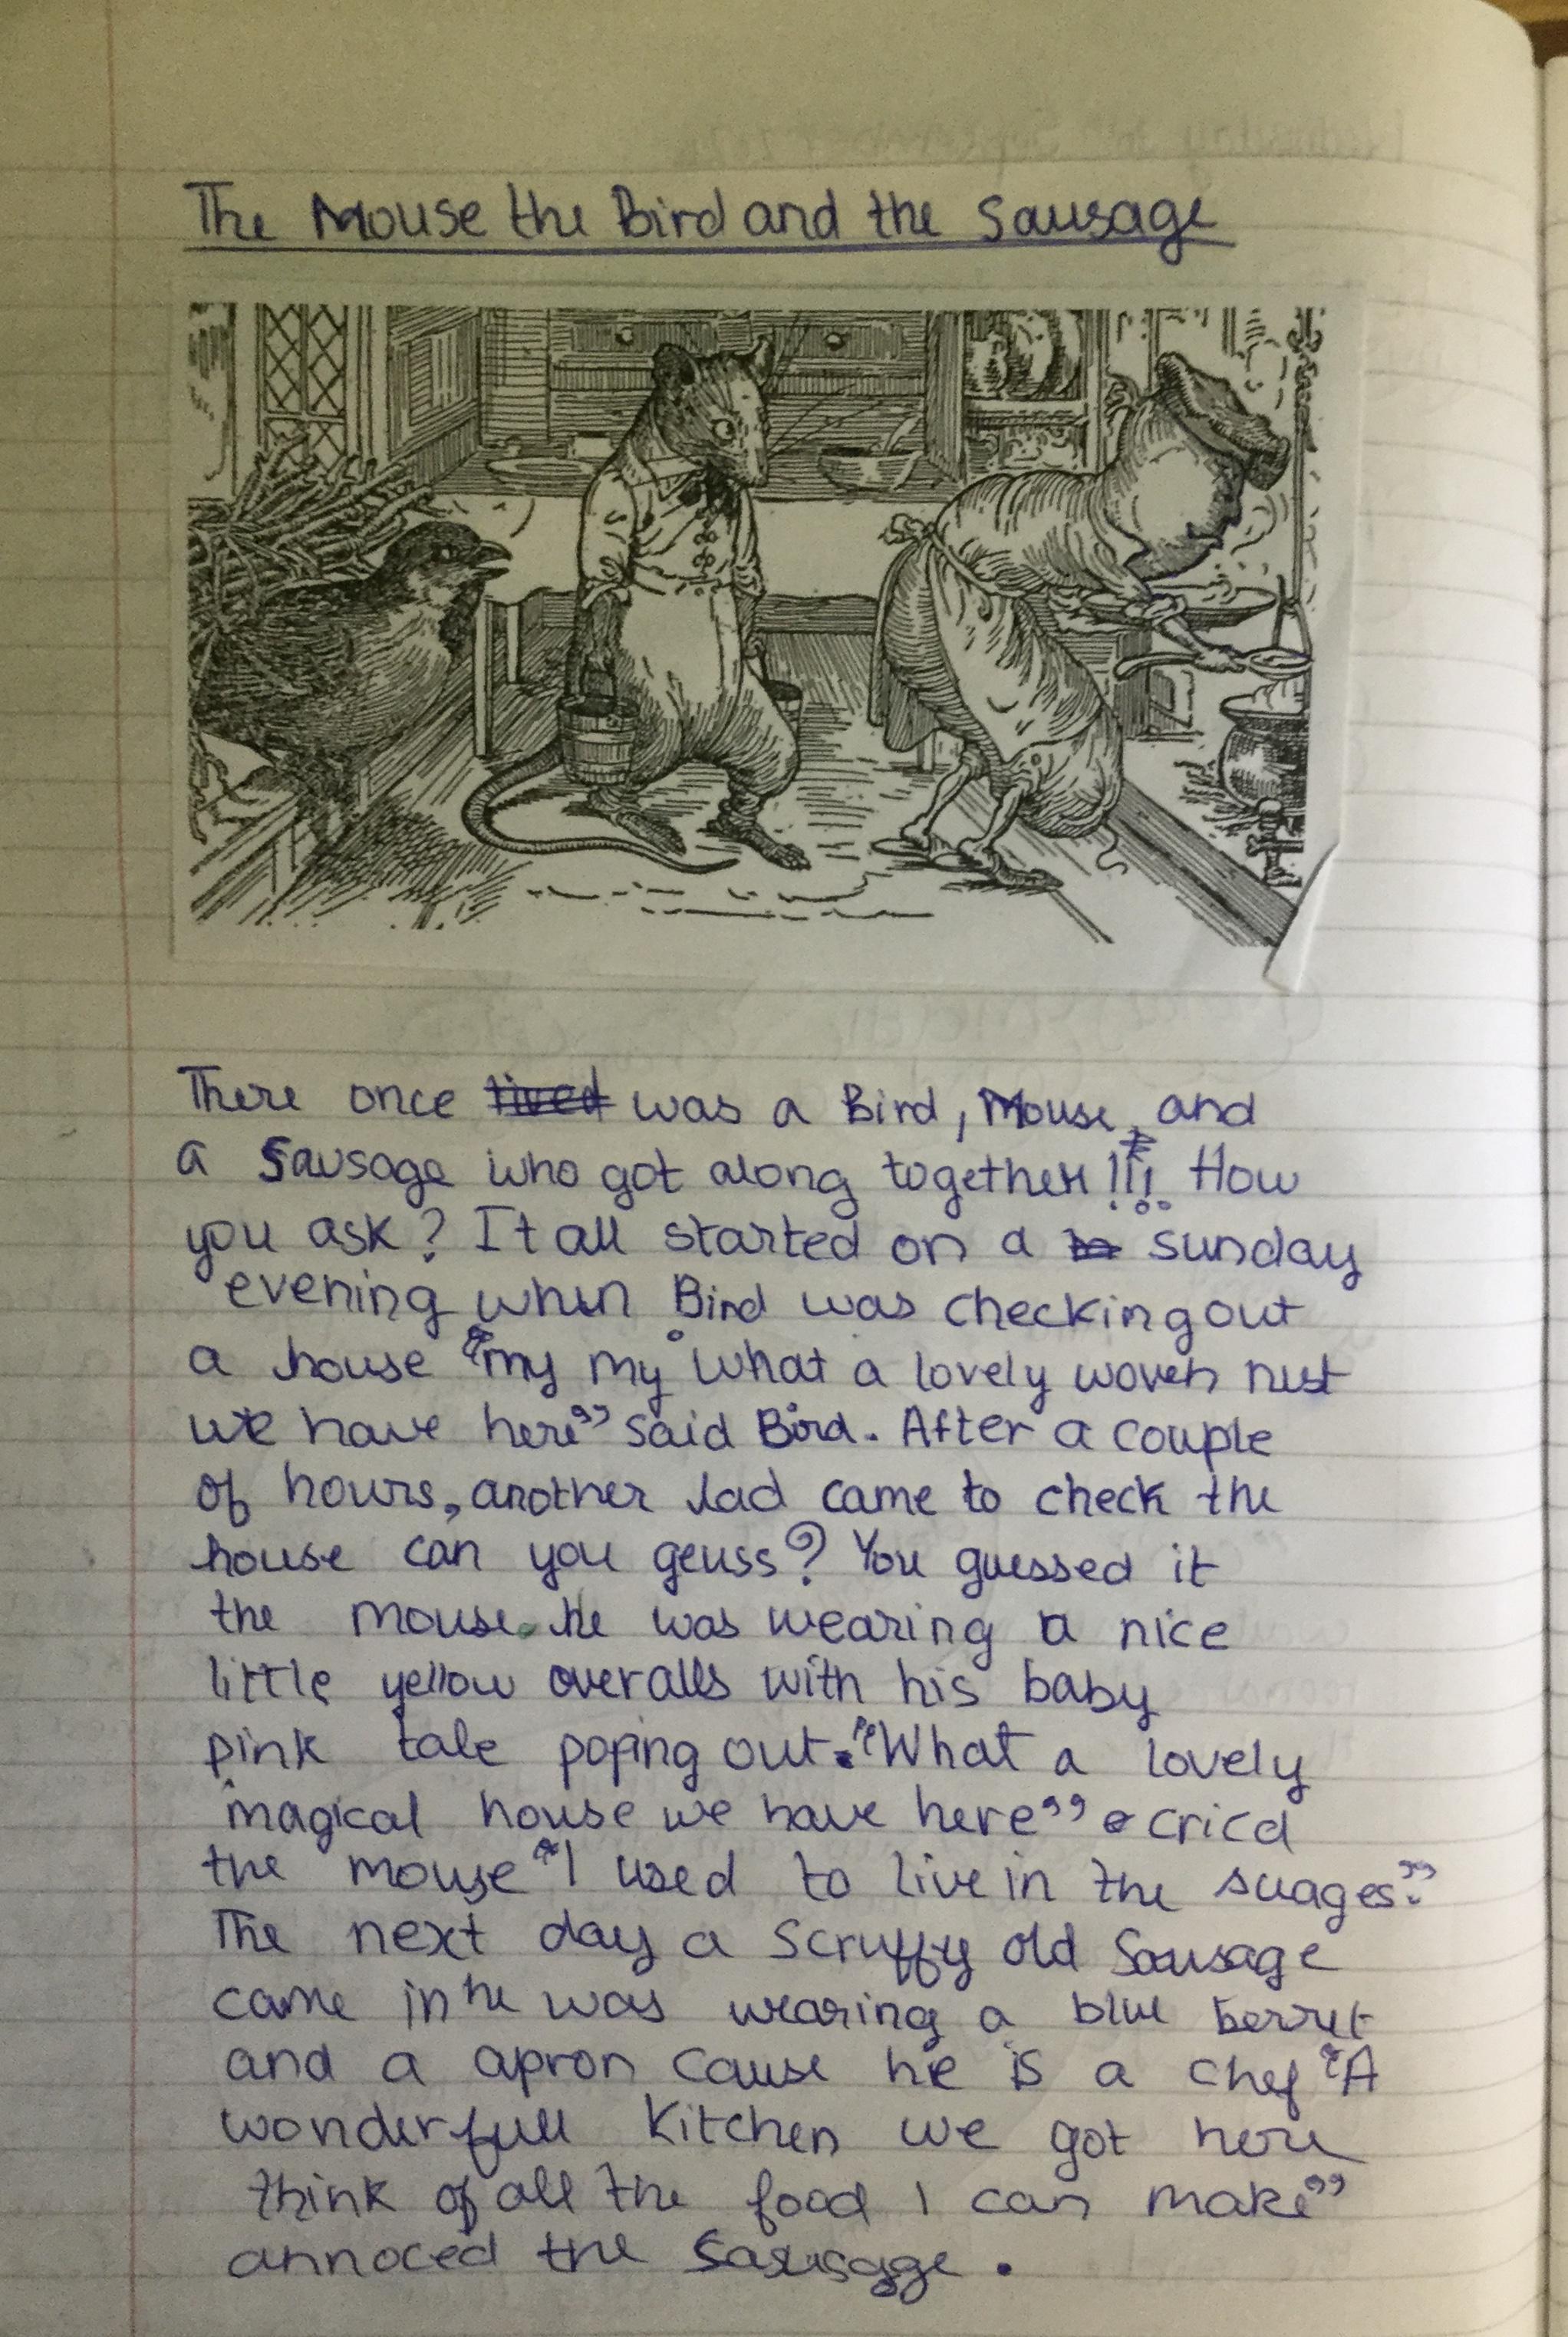 The Mouse the Bird and the Sausage
There once lived was a Bird, Mouse, and
a Sausage who got along together!!! How
you ask? It all started on a sunday
evening when Bird was checking out
a house "my my what a lovely woven nest
we have here" said Bird. After a couple
of hours, another lad came to check the
house can you geuss? You guessed it
the mouse. he was wearing a nice
little yellow overalls with his baby
pink tale poping out. "What a lovely
magical house we have here" cried
the mouse "I used to live in the suages."
The next day a scruffy old Sausage
came in he was wearing a blue berret
and a apron cause he is a chef "A
wonderfull kitchen we got here
think of all the food I can make"
annoced the Sausage.